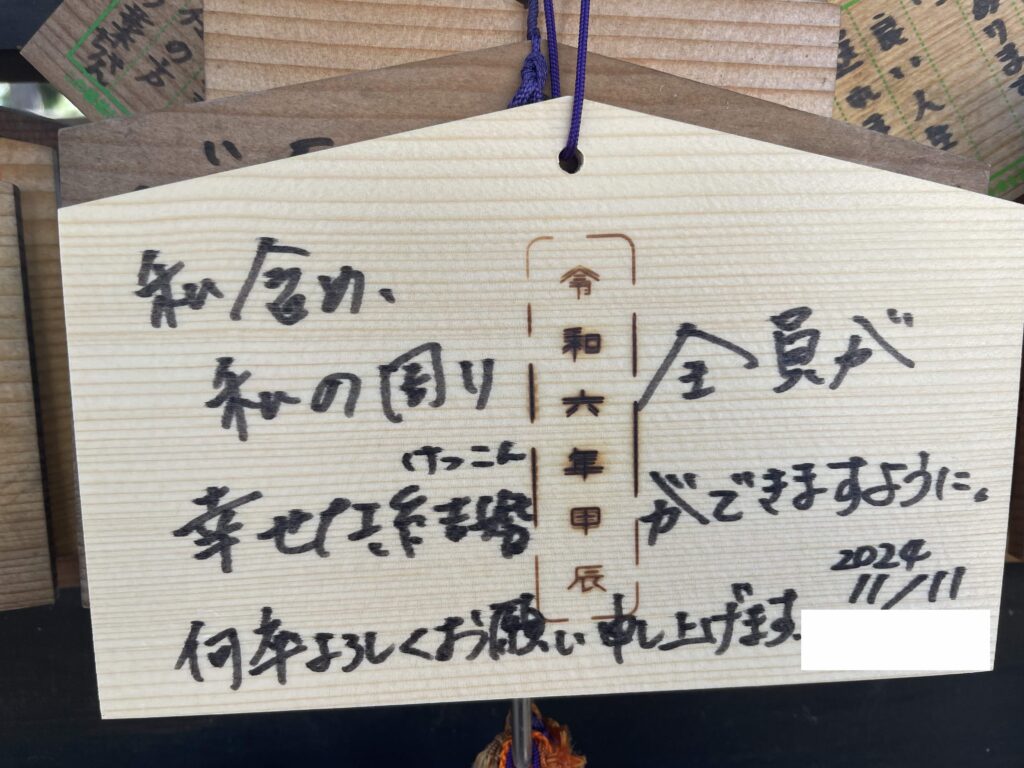 私含め、
私の周り全員が
けっこん
幸せな結婚ができますように。
何卒よろしくお願い申し上げます.
2024
11/11
令和六年甲辰
良い
人生